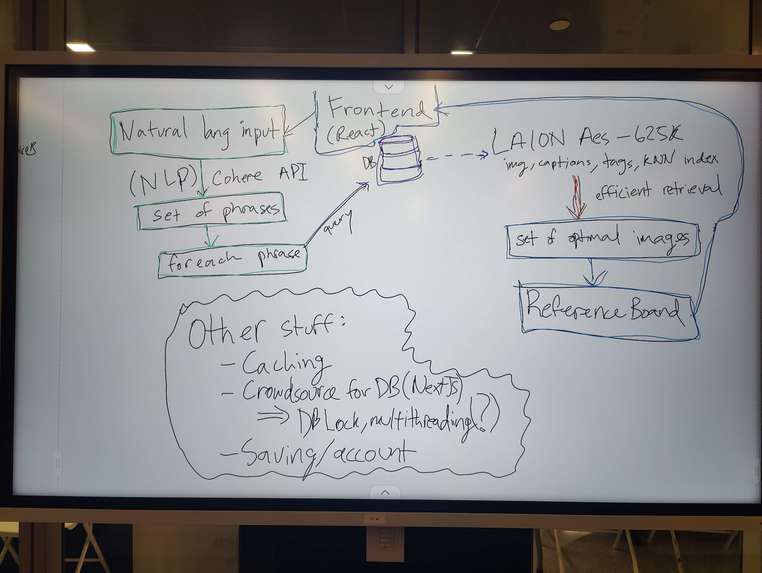 Frontend
(React)
Natural lang input
(NLP) Cohere API
set of phrases
foreach phrase
query
DB
LAION Aes - 625K
img, captions, tags, KNN index
efficient retrieval
set of optimal images
Reference Board
Other stuff:
- Caching
- Crowdsource for DB (NextJs)
⇒ DB Lock, multithreading(?)
- Saving/account